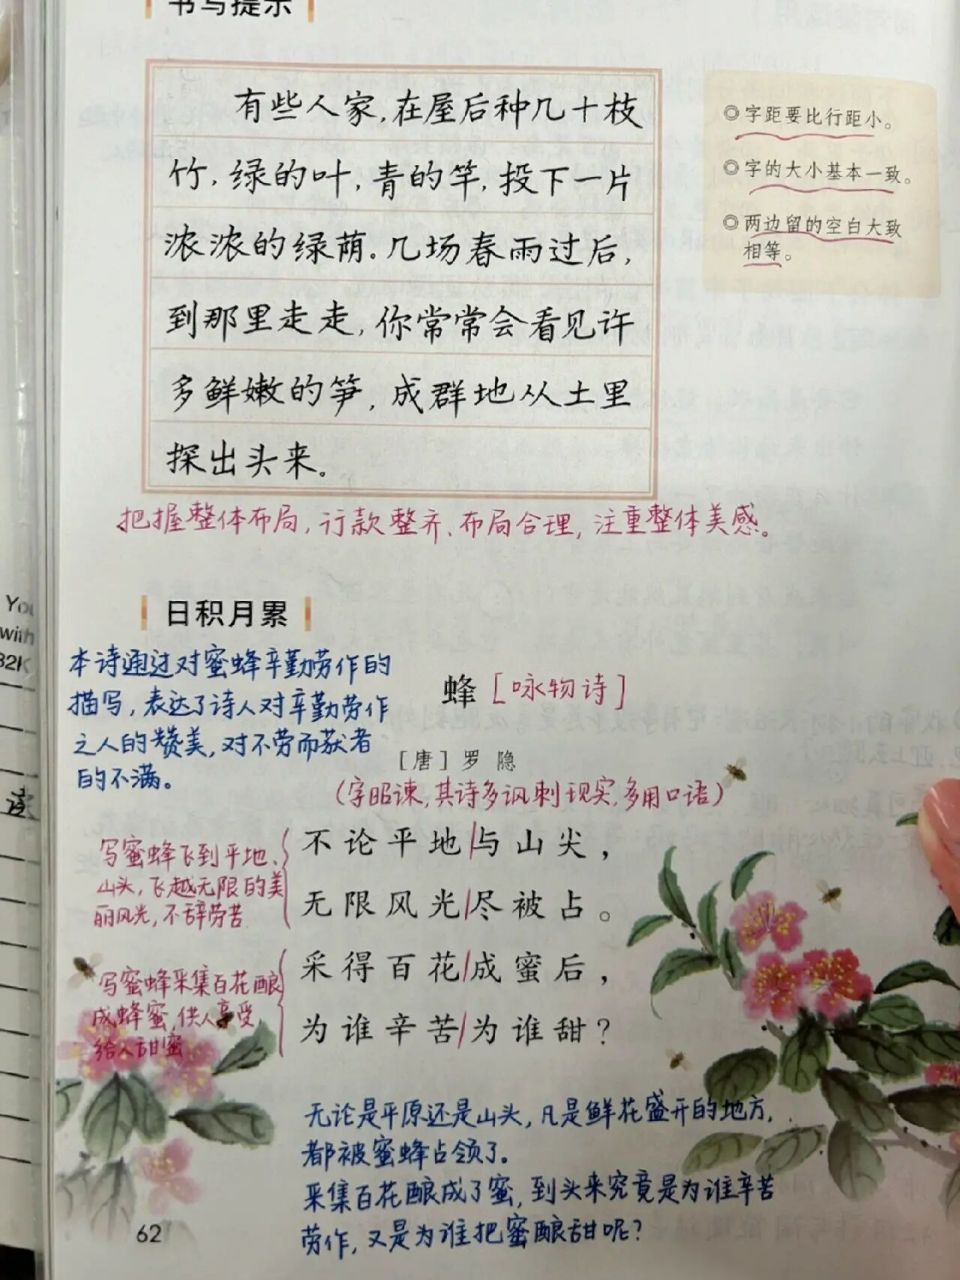 书写提示
有些人家，在屋后种几十枝
竹，绿的叶，青的竿，投下一片
浓浓的绿荫。几场春雨过后，
到那里走走，你常常会看见许
多鲜嫩的笋，成群地从土里
探出头来。
◎字距要比行距小。
◎字的大小基本一致。
◎两边留的空白大致
相等。
把握整体布局，行款整齐、布局合理，注重整体美感。
日积月累
本诗通过对蜜蜂辛勤劳作的
描写，表达了诗人对辛勤劳作
之人的赞美，对不劳而获者
的不满。
蜂［咏物诗］
［唐］罗隐
（字昭谏，其诗多讽刺现实，多用口语）
写蜜蜂飞到平地、
山头，飞越无限的美
丽风光，不辞劳苦
不论平地|与山尖，
无限风光|尽被占。
写蜜蜂采集百花酿
成蜂蜜，供人享受
给人甜蜜
采得百花|成蜜后，
为谁辛苦|为谁甜？
无论是平原还是山头，凡是鲜花盛开的地方，
都被蜜蜂占领了。
采集百花酿成了蜜，到头来究竟是为谁辛苦
劳作，又是为谁把蜜酿甜呢？
62
You
with
32K